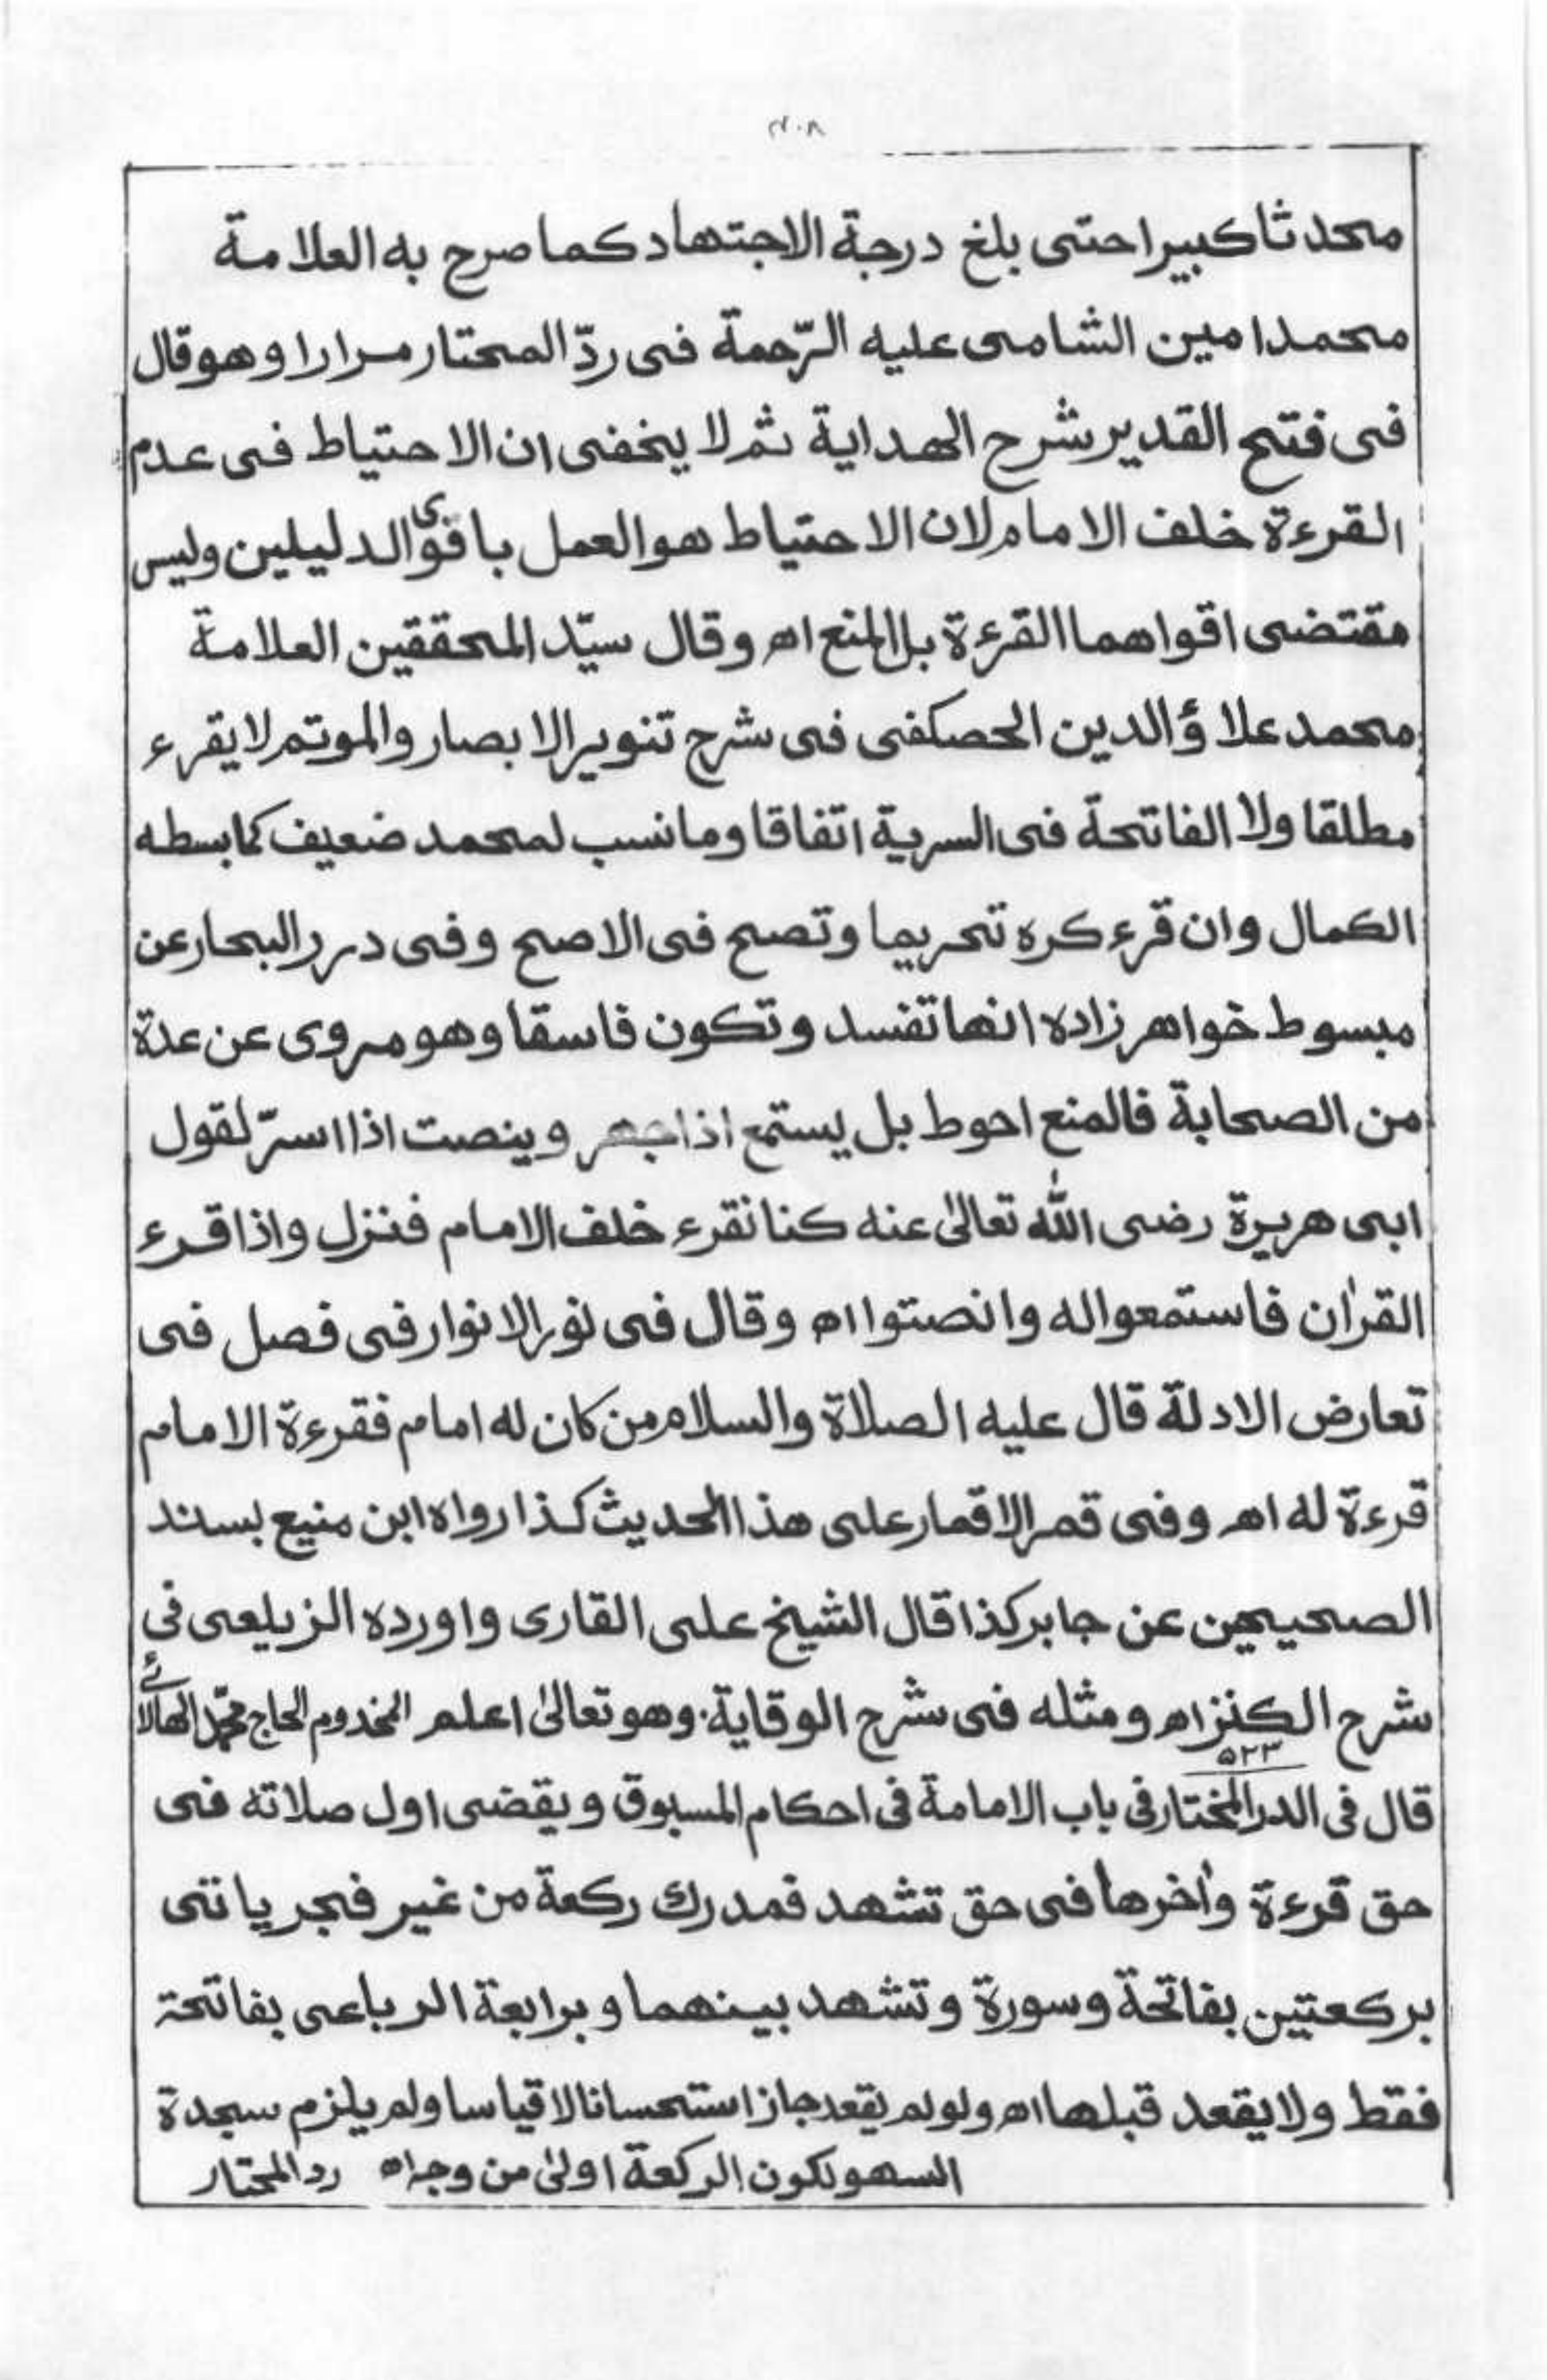 ٢٠٨
محدثا كبيرا حتى بلغ درجة الاجتهاد كما صرح به العلامة
محمد امين الشامى عليه الرّحمة فى ردّ المحتار مرارا وهو قال
فى فتح القدير شرح الهداية ثم لا يخفى ان الاحتياط فى عدم
القرءة خلف الامام لان الاحتياط هو العمل باقوى الدليلين وليس
مقتضى اقواهما القرءة بل المنع اه وقال سيّد المحققين العلامة
محمد علاؤ الدين الحصكفى فى شرح تنوير الابصار والموتم لا يقرء
مطلقا ولا الفاتحة فى السرية اتفاقا وما نسب لمحمد ضعيف كما بسطه
الكمال وان قرء كره تحريما وتصح فى الاصح وفى درر البحار عن
مبسوط خواهر زاده انها تفسد وتكون فاسقا وهو مروى عن عدة
من الصحابة فالمنع احوط بل يستمع اذا جهر وينصت اذا اسرّ لقول
ابى هريرة رضى الله تعالىٰ عنه كنا نقرء خلف الامام فنزل واذا قرء
القرٰان فاستمعوا له وانصتوا اه وقال فى نور الانوار فى فصل فى
تعارض الادلة قال عليه الصلاة والسلام من كان له امام فقرءة الامام
قرءة له اه وفى قمر الاقمار على هذا الحديث كذا رواه ابن منيع بسند
الصحيحين عن جابر كذا قال الشيخ على القارى واورده الزيلعى فى
شرح الكنز اه ومثله فى شرح الوقاية. وهو تعالىٰ اعلم المخدوم الحاج محمّد الهالائى
٥٢٣
قال فى الدر المختار فى باب الامامة فى احكام المسبوق ويقضى اول صلاته فى
حق قرءة واٰخرها فى حق تشهد فمدرك ركعة من غير فجر ياتى
بركعتين بفاتحة وسورة وتشهد بينهما وبرابعة الرباعى بفاتحة
فقط ولا يقعد قبلها اه ولو لم يقعد جاز استحسانا لا قياسا ولم يلزم سجدة
السهو لكون الركعة اولىٰ من وجه اه رد المحتار